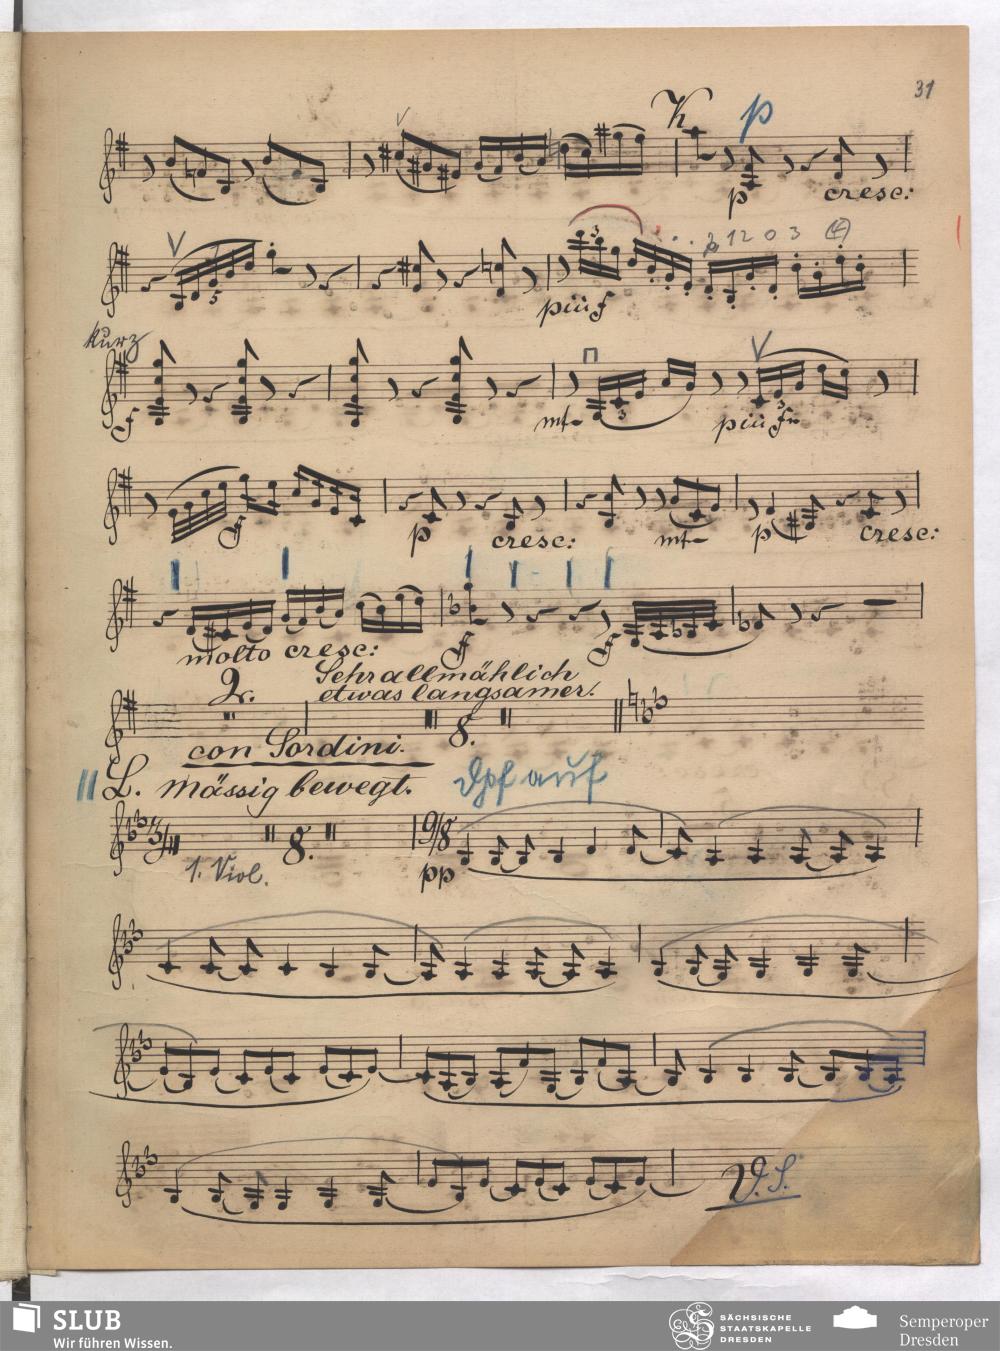 31
K p
p cresc:
V 5 3 1 2 0 3 (4)
più f
kurz
f mf 3 V più f 3
f p cresc: mf p cresc:
molto cresc: f f
2. Sehr allmählich
etwas langsamer.
8.
con Sordini.
L. mässig bewegt. Dpf auf
3/4 8. 9/8
1. Viol. pp
V.S.
SLUB
Wir führen Wissen.
SÄCHSISCHE
STAATSKAPELLE
DRESDEN
Semperoper
Dresden